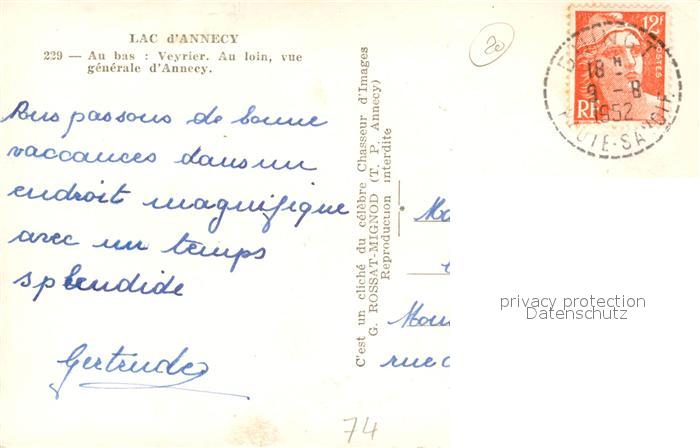 LAC d'ANNECY
229 — Au bas : Veyrier. Au loin, vue
générale d'Annecy.
Nous passons de bonne
vaccances dans un
endroit magnifique
avec un temps
splendide
Gertrude
C'est un cliché du célèbre Chasseur d'Images
G. ROSSAT-MIGNOD (T. P. Annecy)
Reproduction interdite
20
12f
POSTES
RF
18 H
9 - 8
1952
HAUTE-SAVOIE
Mou
rue
privacy protection
Datenschutz
74